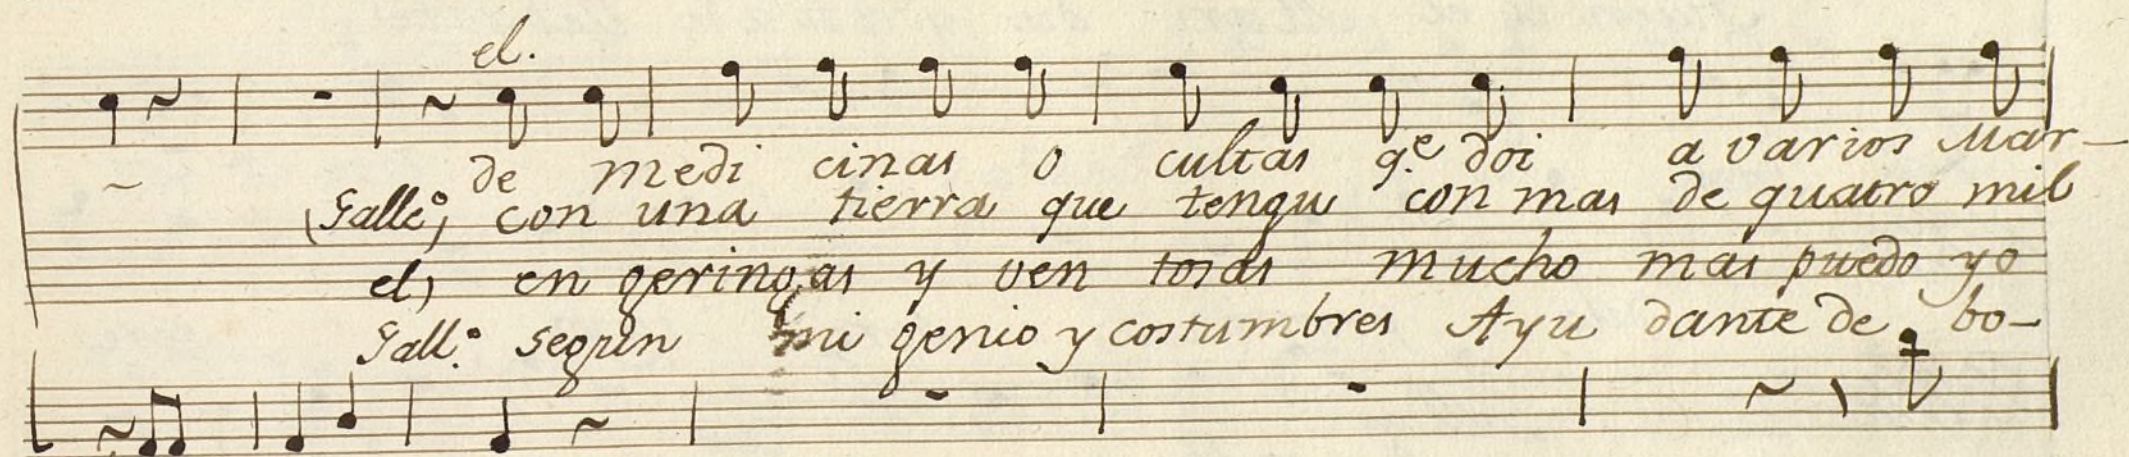 el.
de medi cinas o cultas q.e doi a varios Mar-
(Galle.o) con una tierra que tengu con mas de quatro mil
el) en geringas y ven tosas mucho mas puedo yo
Gall.o segun mi genio y costumbres Ayu dante de bo-